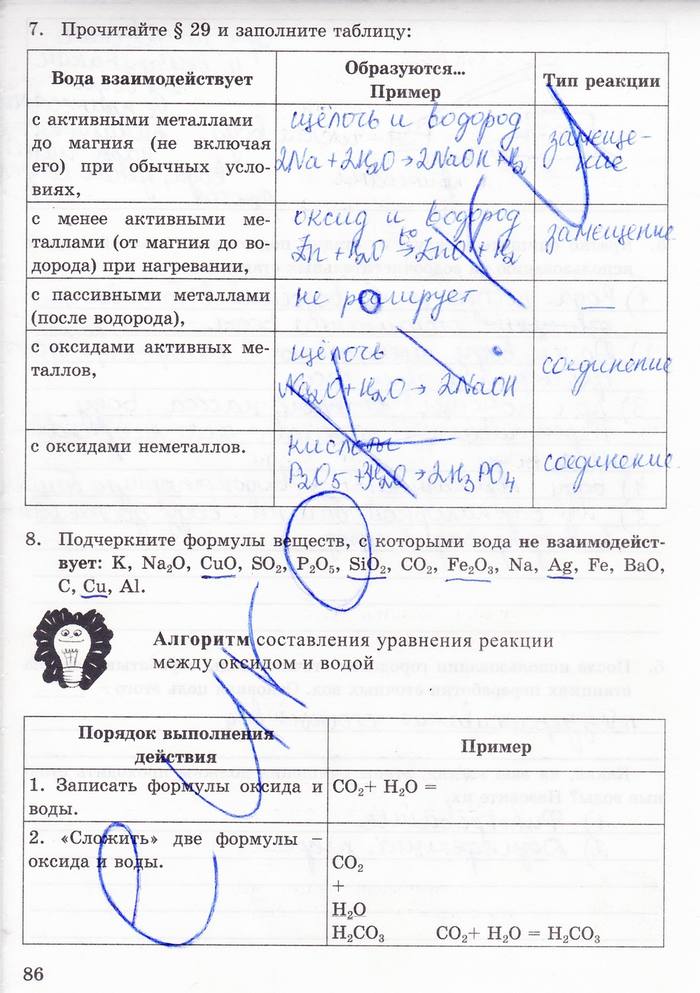 7. Прочитайте § 29 и заполните таблицу:
Вода взаимодействует
Образуются...
Пример
Тип реакции
с активными металлами
до магния (не включая
его) при обычных усло-
виях,
щёлочь и водород
2Na + 2H₂O → 2NaOH + H₂
замеще-
ние
с менее активными ме-
таллами (от магния до во-
дорода) при нагревании,
оксид и водород
Zn + H₂O t° → ZnO + H₂
замещение
с пассивными металлами
(после водорода),
не реагирует
—
с оксидами активных ме-
таллов,
щёлочь
Na₂O + H₂O → 2NaOH
соединение
с оксидами неметаллов.
кислоты
P₂O₅ + 3H₂O → 2H₃PO₄
соединение
8. Подчеркните формулы веществ, с которыми вода не взаимодейст-
вует: K, Na₂O, CuO, SO₂, P₂O₅, SiO₂, CO₂, Fe₂O₃, Na, Ag, Fe, BaO,
C, Cu, Al.
Алгоритм составления уравнения реакции
между оксидом и водой
Порядок выполнения
действия
Пример
1. Записать формулы оксида и
воды.
CO₂+ H₂O =
2. «Сложить» две формулы –
оксида и воды.
CO₂
+
H₂O
H₂CO₃ CO₂+ H₂O = H₂CO₃
86